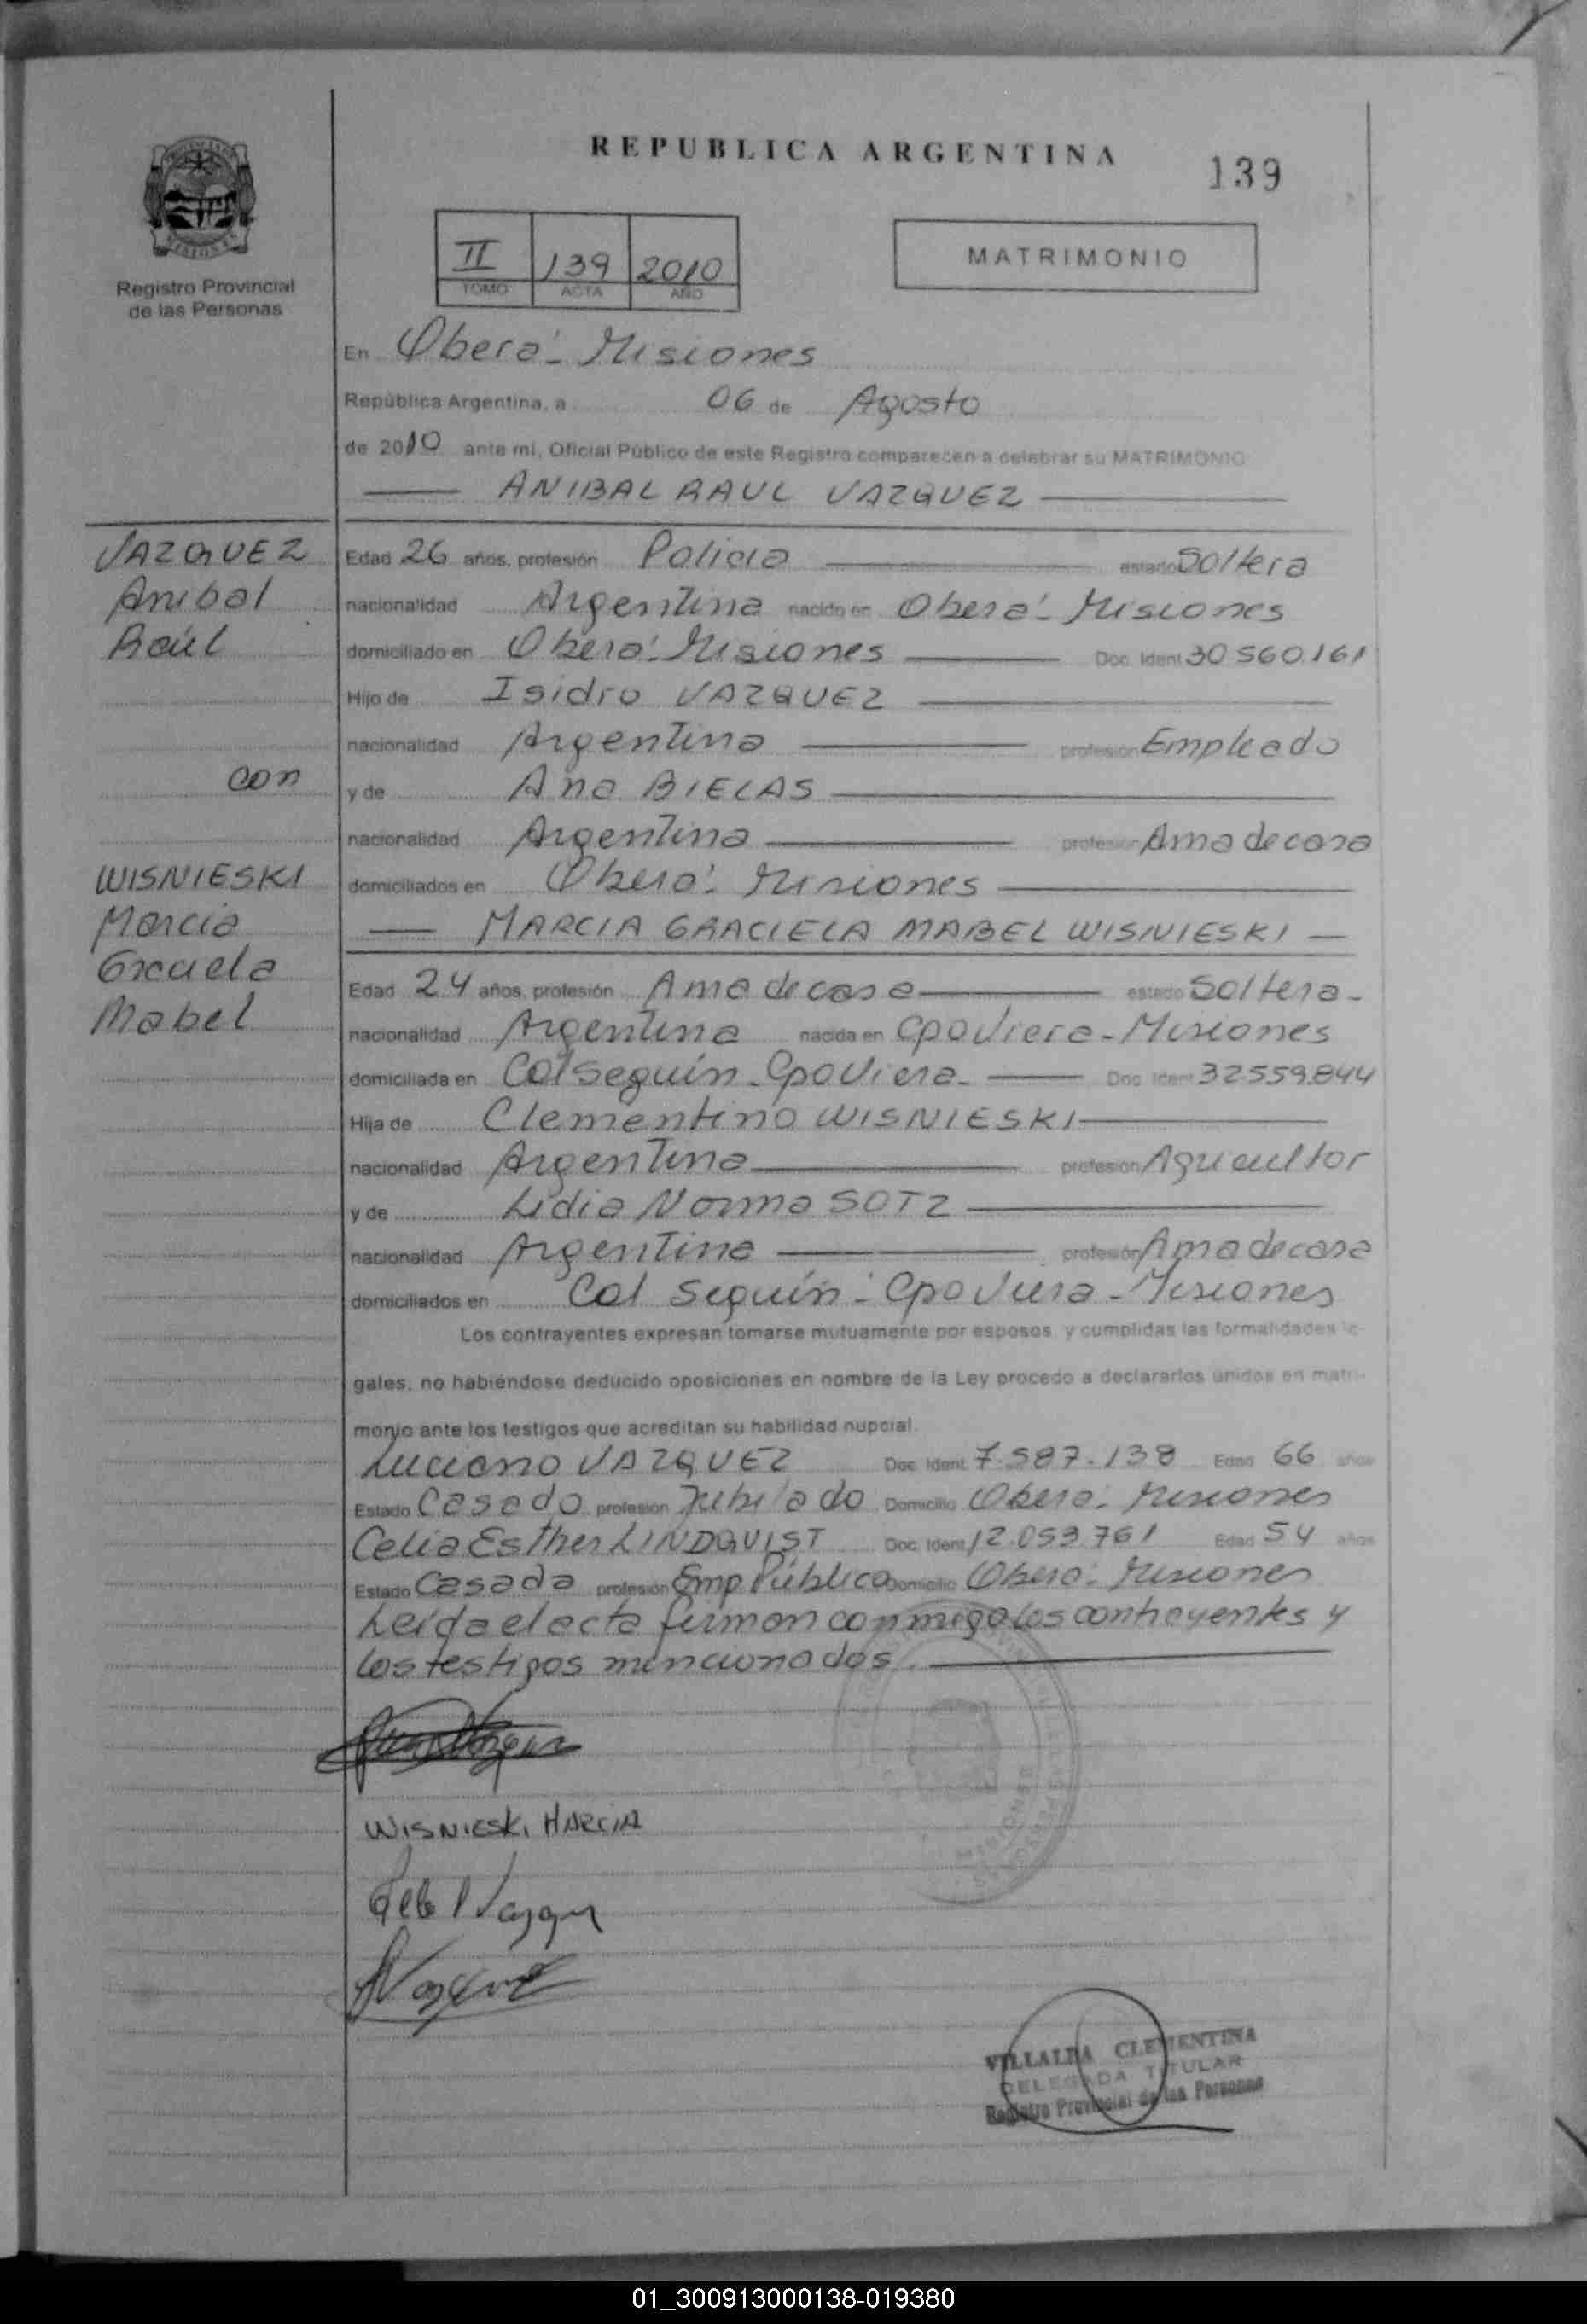 REPUBLICA ARGENTINA
139
Registro Provincial
de las Personas
II 139 2010
TOMO ACTA AÑO
MATRIMONIO
En Oberá - Misiones
República Argentina, a 06 de Agosto
de 2010 ante mi, Oficial Público de este Registro comparecen a celebrar su MATRIMONIO
ANIBAL RAUL VAZQUEZ
VAZQUEZ
Anibal
Raúl
con
WISNIESKI
Marcia
Graciela
Mabel
Edad 26 años, profesión Policia estado Soltera
nacionalidad Argentina nacido en Oberá - Misiones
domiciliado en Oberá - Misiones Doc. Ident 30.560.161
Hijo de Isidro VAZQUEZ
nacionalidad Argentina profesión Empleado
y de Ana BIELAS
nacionalidad Argentina profesión Ama de casa
domiciliados en Oberá - Misiones
MARCIA GRACIELA MABEL WISNIESKI
Edad 24 años, profesión Ama de casa estado Soltera -
nacionalidad Argentina nacida en Cpo Viera - Misiones
domiciliada en Col Seguín - Cpo Viera - Doc. Ident 32.559.844
Hija de Clementino WISNIESKI
nacionalidad Argentina profesión Agricultor
y de Lidia Norma SOTZ
nacionalidad Argentina profesión Ama de casa
domiciliados en Col Seguín - Cpo Viera - Misiones
Los contrayentes expresan tomarse mutuamente por esposos, y cumplidas las formalidades le-
gales, no habiéndose deducido oposiciones en nombre de la Ley procedo a declararlos unidos en matri-
monio ante los testigos que acreditan su habilidad nupcial.
Luciano VAZQUEZ Doc. Ident 7.587.138 Edad 66 años
Estado Casado profesión Jubilado Domicilio Oberá - Misiones
Celia Esther LINDQUIST Doc. Ident 12.053.761 Edad 54 años
Estado Casada profesión Emp Pública Domicilio Oberá - Misiones
Leída el acta firman conmigo los contrayentes y
los testigos mencionados.
WISNIESKI MARCIA
VILLALBA CLEMENTINA
DELEGADA TITULAR
Registro Provincial de las Personas
01_300913000138-019380